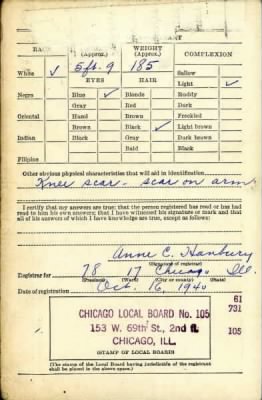 HEIGHT (Approx.) WEIGHT (Approx.) COMPLEXION
White ✓ 5 ft. 9 185 Sallow
Light ✓
EYES HAIR
Negro Blue ✓ Blonde Ruddy
Gray Red Dark
Oriental Hazel Brown Freckled
Brown Black ✓ Light brown
Indian Black Gray Dark brown
Bald Black
Filipino
Other obvious physical characteristics that will aid in identification
Knee scar - scar on arm
I certify that my answers are true; that the person registered has read or has had
read to him his own answers; that I have witnessed his signature or mark and that
all of his answers of which I have knowledge are true, except as follows:
Anne C. Hanbury
(Signature of registrar)
Registrar for 28 17 Chicago Ill.
(Precinct) (Ward) (City or county) (State)
Date of registration Oct. 16, 1940
61
731
105
CHICAGO LOCAL BOARD No. 105
153 W. 69th St., 2nd fl.
CHICAGO, ILL.
(STAMP OF LOCAL BOARD)
(The stamp of the Local Board having jurisdiction of the registrant
shall be placed in the above space.)